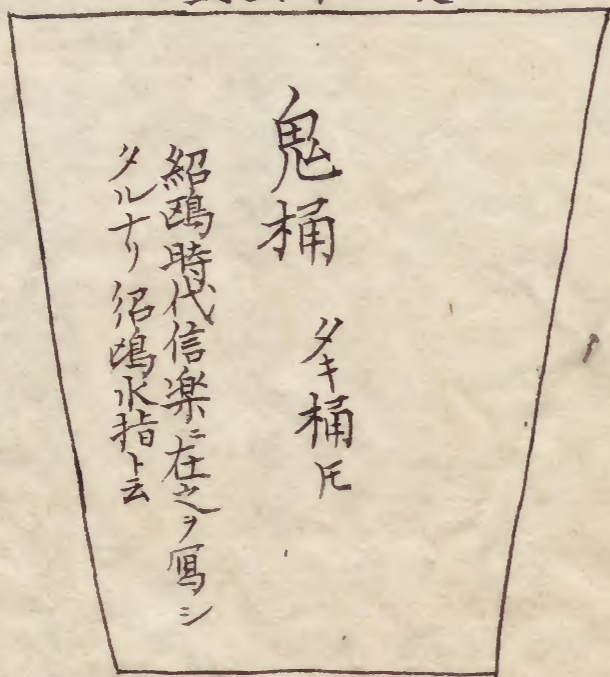 鬼桶 タキ桶𪜈
紹鴎時代信楽ニ在之ヲ寫シ
タルナリ紹鴎水指ト云